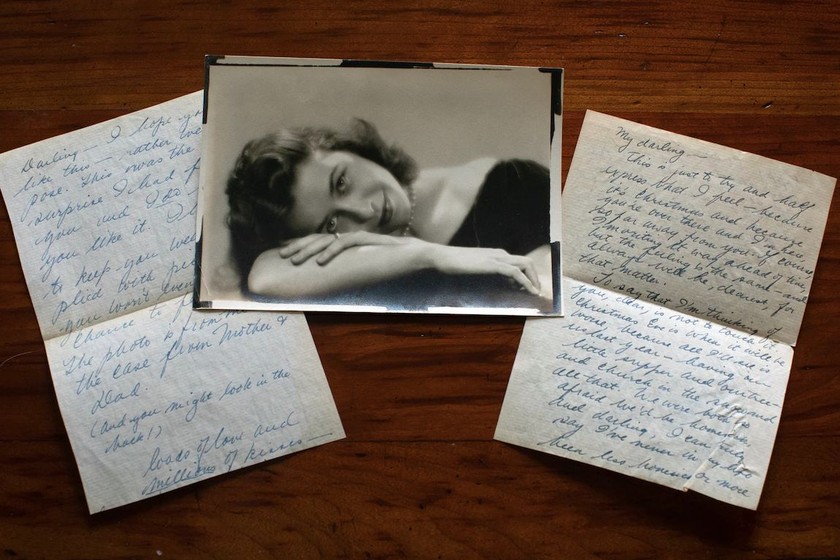 Darling — I hope yo
like this — rather we
pose. This was the
surprise I had f
you and I do
you like it. I'll
to keep you we
plied with pi
you won't even
chance to
The photo is from m
the case from Mother &
Dad.
(And you might look in the
back!)
loads of love and
millions of kisses —
My darling —
This is just to try and half
express what I feel — because
it's Christmas and because
you're over there and I'm
so far away from you. Of course
I'm writing it way ahead of time,
but the feeling is the same and
always will be, dearest, for
that matter.
To say that I'm thinking of
you, dear, is not to touch it.
Christmas Eve is when it will be
worse, because all I'll see is
us last year — having our
little supper and
and church in the
all that. We were both
afraid we'd be homesick,
and darling, I can truly
say I've never in my life
been less homesick or more